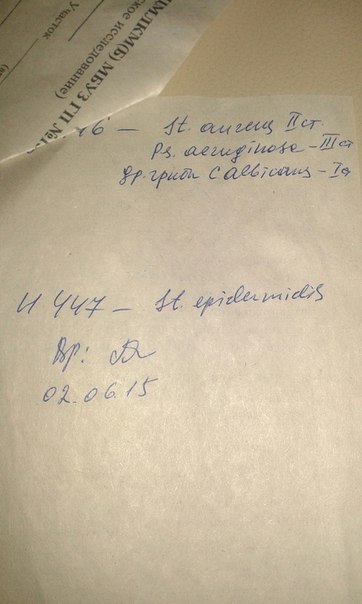 ИМЛКМ(Б) МБУЗ ГП №1
ское исследование)
Участок
46 - St. aureus II ст.
Ps. aeruginosa - III ст
Др. грибы C albicans - I ст
И 447 - St. epidermidis
Вр:
02.06.15